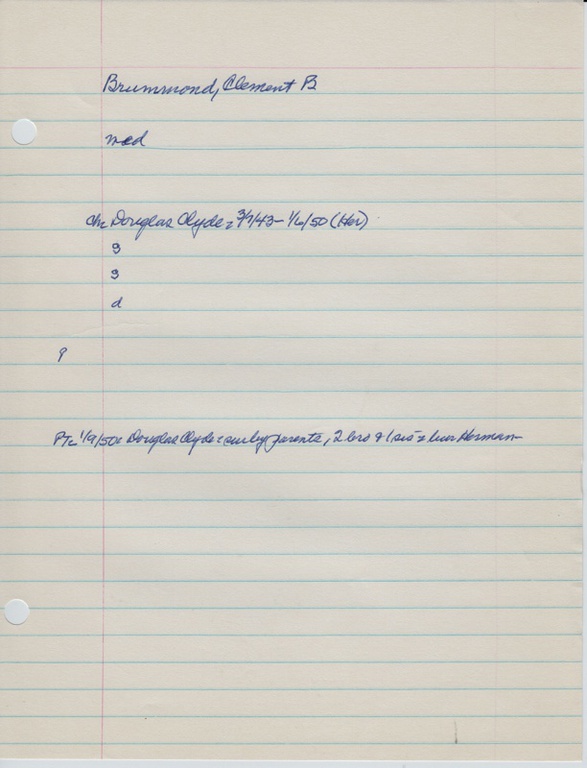 Brummond, Clement B
med
ch: Douglas Clyde = 3/7/43 - 1/6/50 (Her)
s
s
d
?
PT: 1/9/50: Douglas Clyde = sur by parents, 2 bro & 1 sis = bur Herman